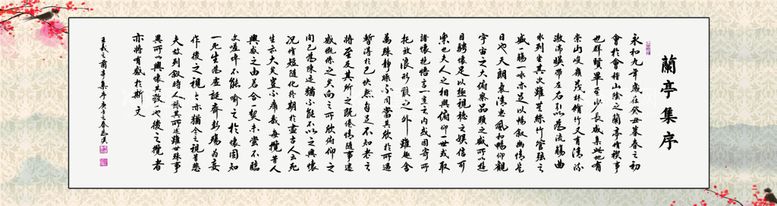 蘭亭集序
永和九年歲在癸丑暮春之初
會於會稽山陰之蘭亭修稧事
也群賢畢至少長咸集此地有
崇山峻嶺茂林修竹又有清流
激湍映帶左右引以為流觴曲
水列坐其次雖無絲竹管弦之
盛一觴一詠亦足以暢敘幽情是
日也天朗氣清惠風和暢仰觀
宇宙之大俯察品類之盛所以遊
目騁懷足以極視聽之娛信可
樂也夫人之相與俯仰一世或取
諸懷抱悟言一室之內或因寄所
托放浪形骸之外雖趣舍
萬殊靜躁不同當其欣於所遇
暫得於己快然自足不知老之
將至及其所之既倦情隨事遷
感慨係之矣向之所欣俯仰之
間已為陳迹猶不能不以之興懷
況修短隨化終期於盡古人云死
生亦大矣豈不痛哉每攬昔人
興感之由若合一契未嘗不臨
文嗟悼不能喻之於懷固知
一死生為虛誕齊彭殤為妄
作後之視今亦猶今之視昔悲
夫故列敘時人錄其所述雖世殊事
異所以興懷其致一也後之攬者
亦將有感於斯文
王羲之蘭亭集序